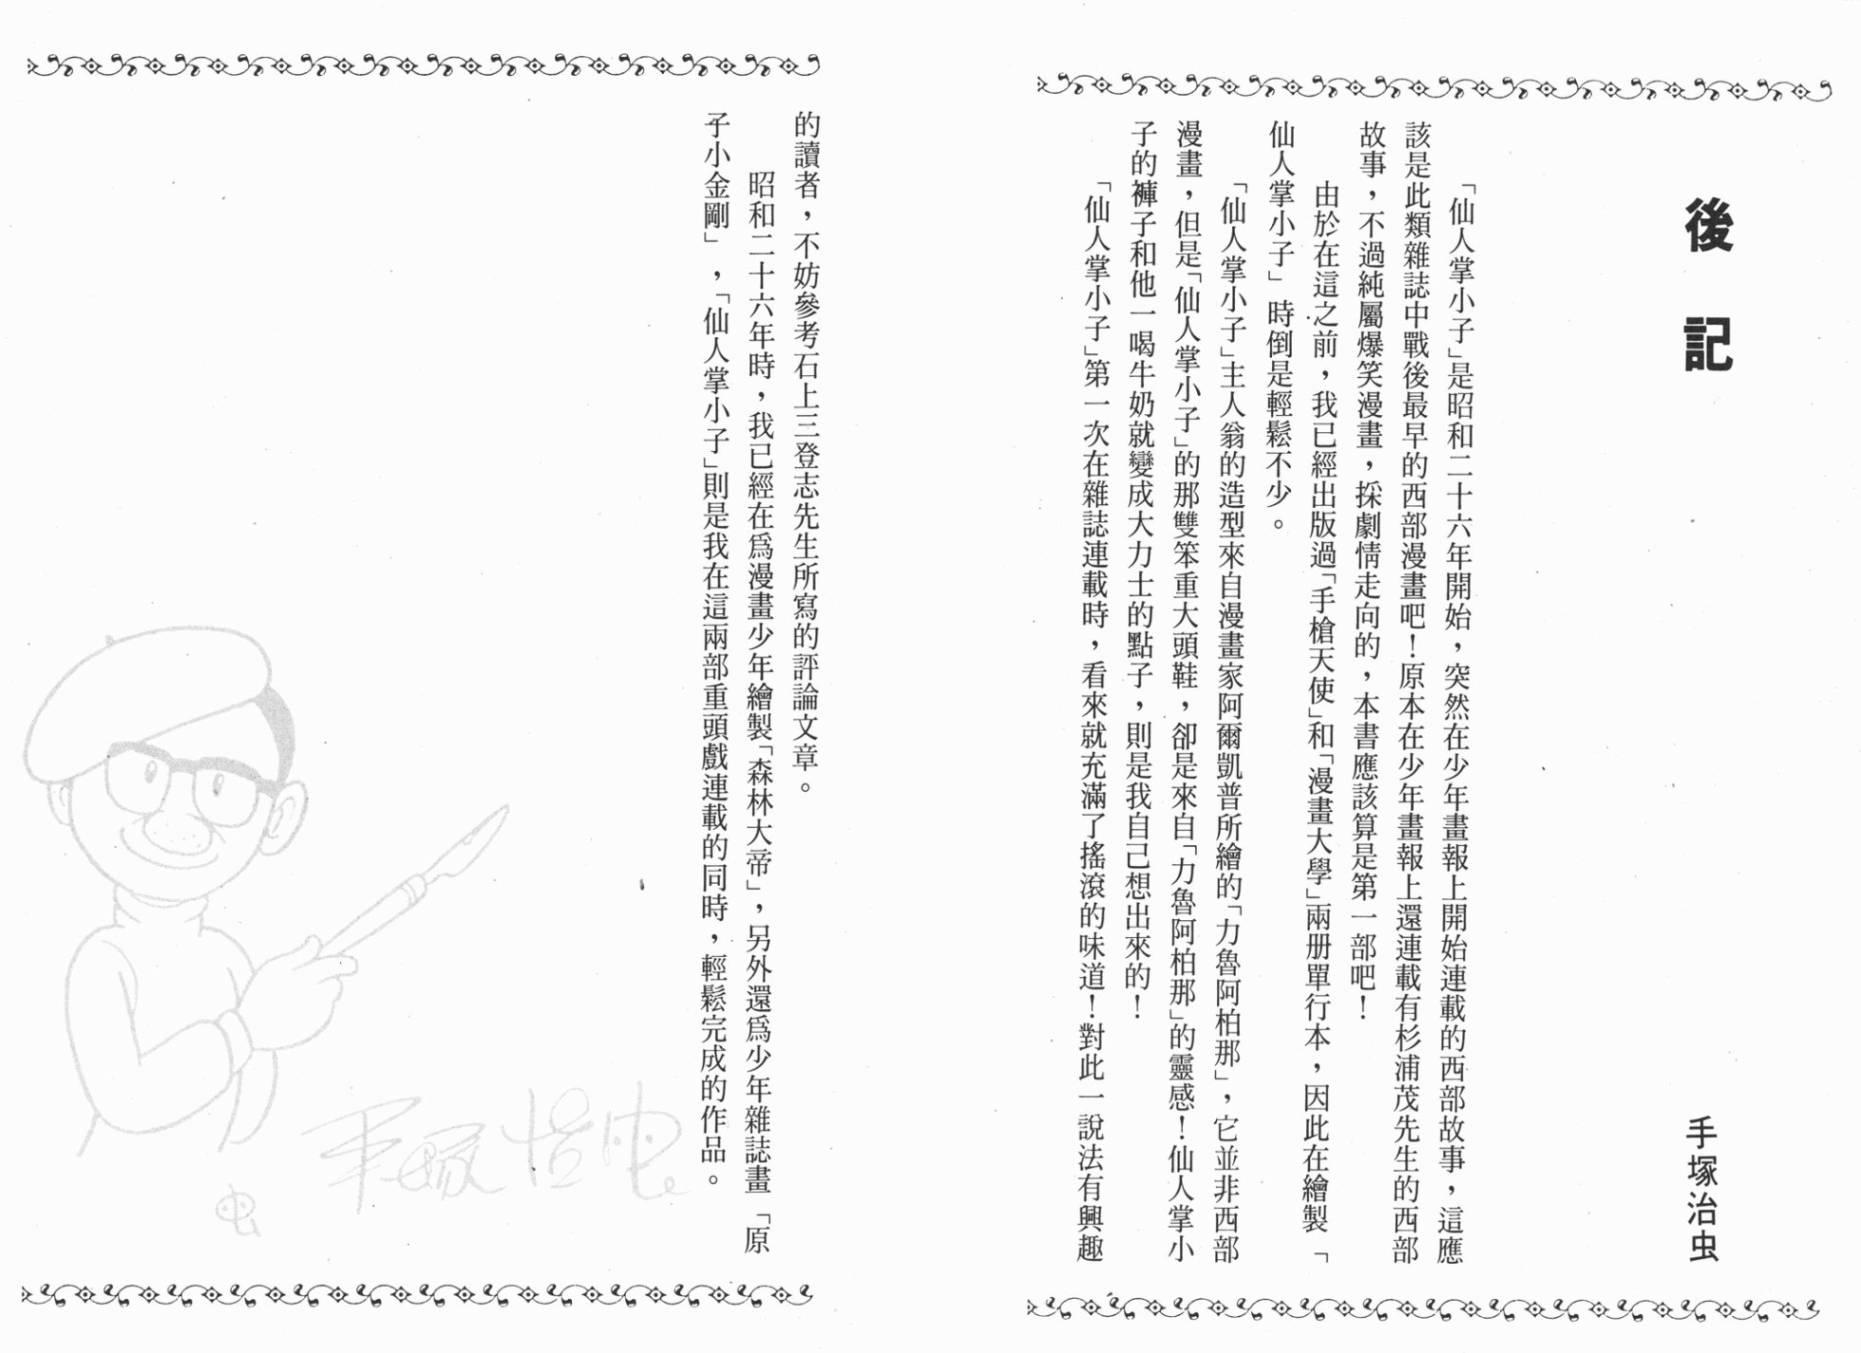 後記
手塚治虫
「仙人掌小子」是昭和二十六年開始，突然在少年畫報上開始連載的西部故事，這應
該是此類雜誌中戰後最早的西部漫畫吧！原本在少年畫報上還連載有杉浦茂先生的西部
故事，不過純屬爆笑漫畫，採劇情走向的，本書應該算是第一部吧！
由於在這之前，我已經出版過「手槍天使」和「漫畫大學」兩册單行本，因此在繪製「
仙人掌小子」時倒是輕鬆不少。
「仙人掌小子」主人翁的造型來自漫畫家阿爾凱普所繪的「力魯阿柏那」，它並非西部
漫畫，但是「仙人掌小子」的那雙笨重大頭鞋，卻是來自「力魯阿柏那」的靈感！仙人掌小
子的褲子和他一喝牛奶就變成大力士的點子，則是我自己想出來的！
「仙人掌小子」第一次在雜誌連載時，看來就充滿了搖滾的味道！對此一說法有興趣
的讀者，不妨參考石上三登志先生所寫的評論文章。
昭和二十六年時，我已經在爲漫畫少年繪製「森林大帝」，另外還爲少年雜誌畫「原
子小金剛」，「仙人掌小子」則是我在這兩部重頭戲連載的同時，輕鬆完成的作品。
手塚治虫
虫